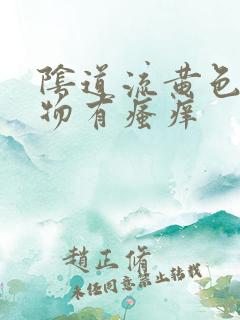 陰道流黄色
物有瘙痒
趙正脩
未经同意禁止转载